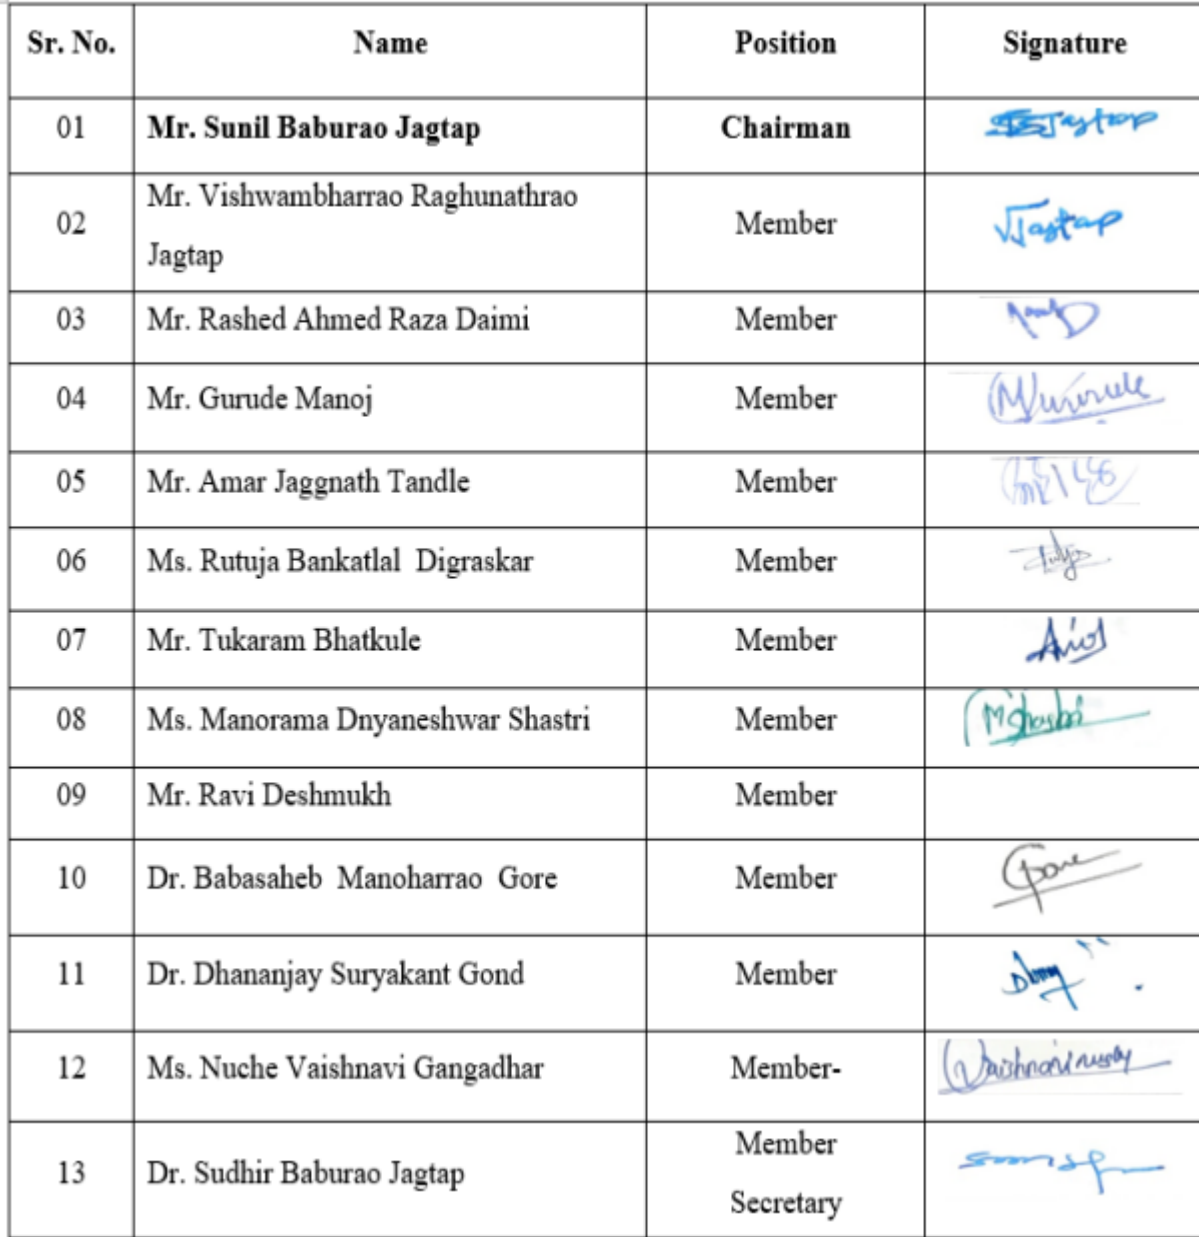 Sr. No. Name Position Signature
01 Mr. Sunil Baburao Jagtap Chairman Jagtap
Mr. Vishwambharrao Raghunathrao
02 Member Jagtap
Jagtap
03 Mr. Rashed Ahmed Raza Daimi Member
04 Mr. Gurude Manoj Member
05 Mr. Amar Jaggnath Tandle Member
06 Ms. Rutuja Bankatlal Digraskar Member
07 Mr. Tukaram Bhatkule Member
08 Ms. Manorama Dnyaneshwar Shastri Member MShastri
09 Mr. Ravi Deshmukh Member
10 Dr. Babasaheb Manoharrao Gore Member Gore
11 Dr. Dhananjay Suryakant Gond Member
12 Ms. Nuche Vaishnavi Gangadhar Member-
Member
13 Dr. Sudhir Baburao Jagtap
Secretary